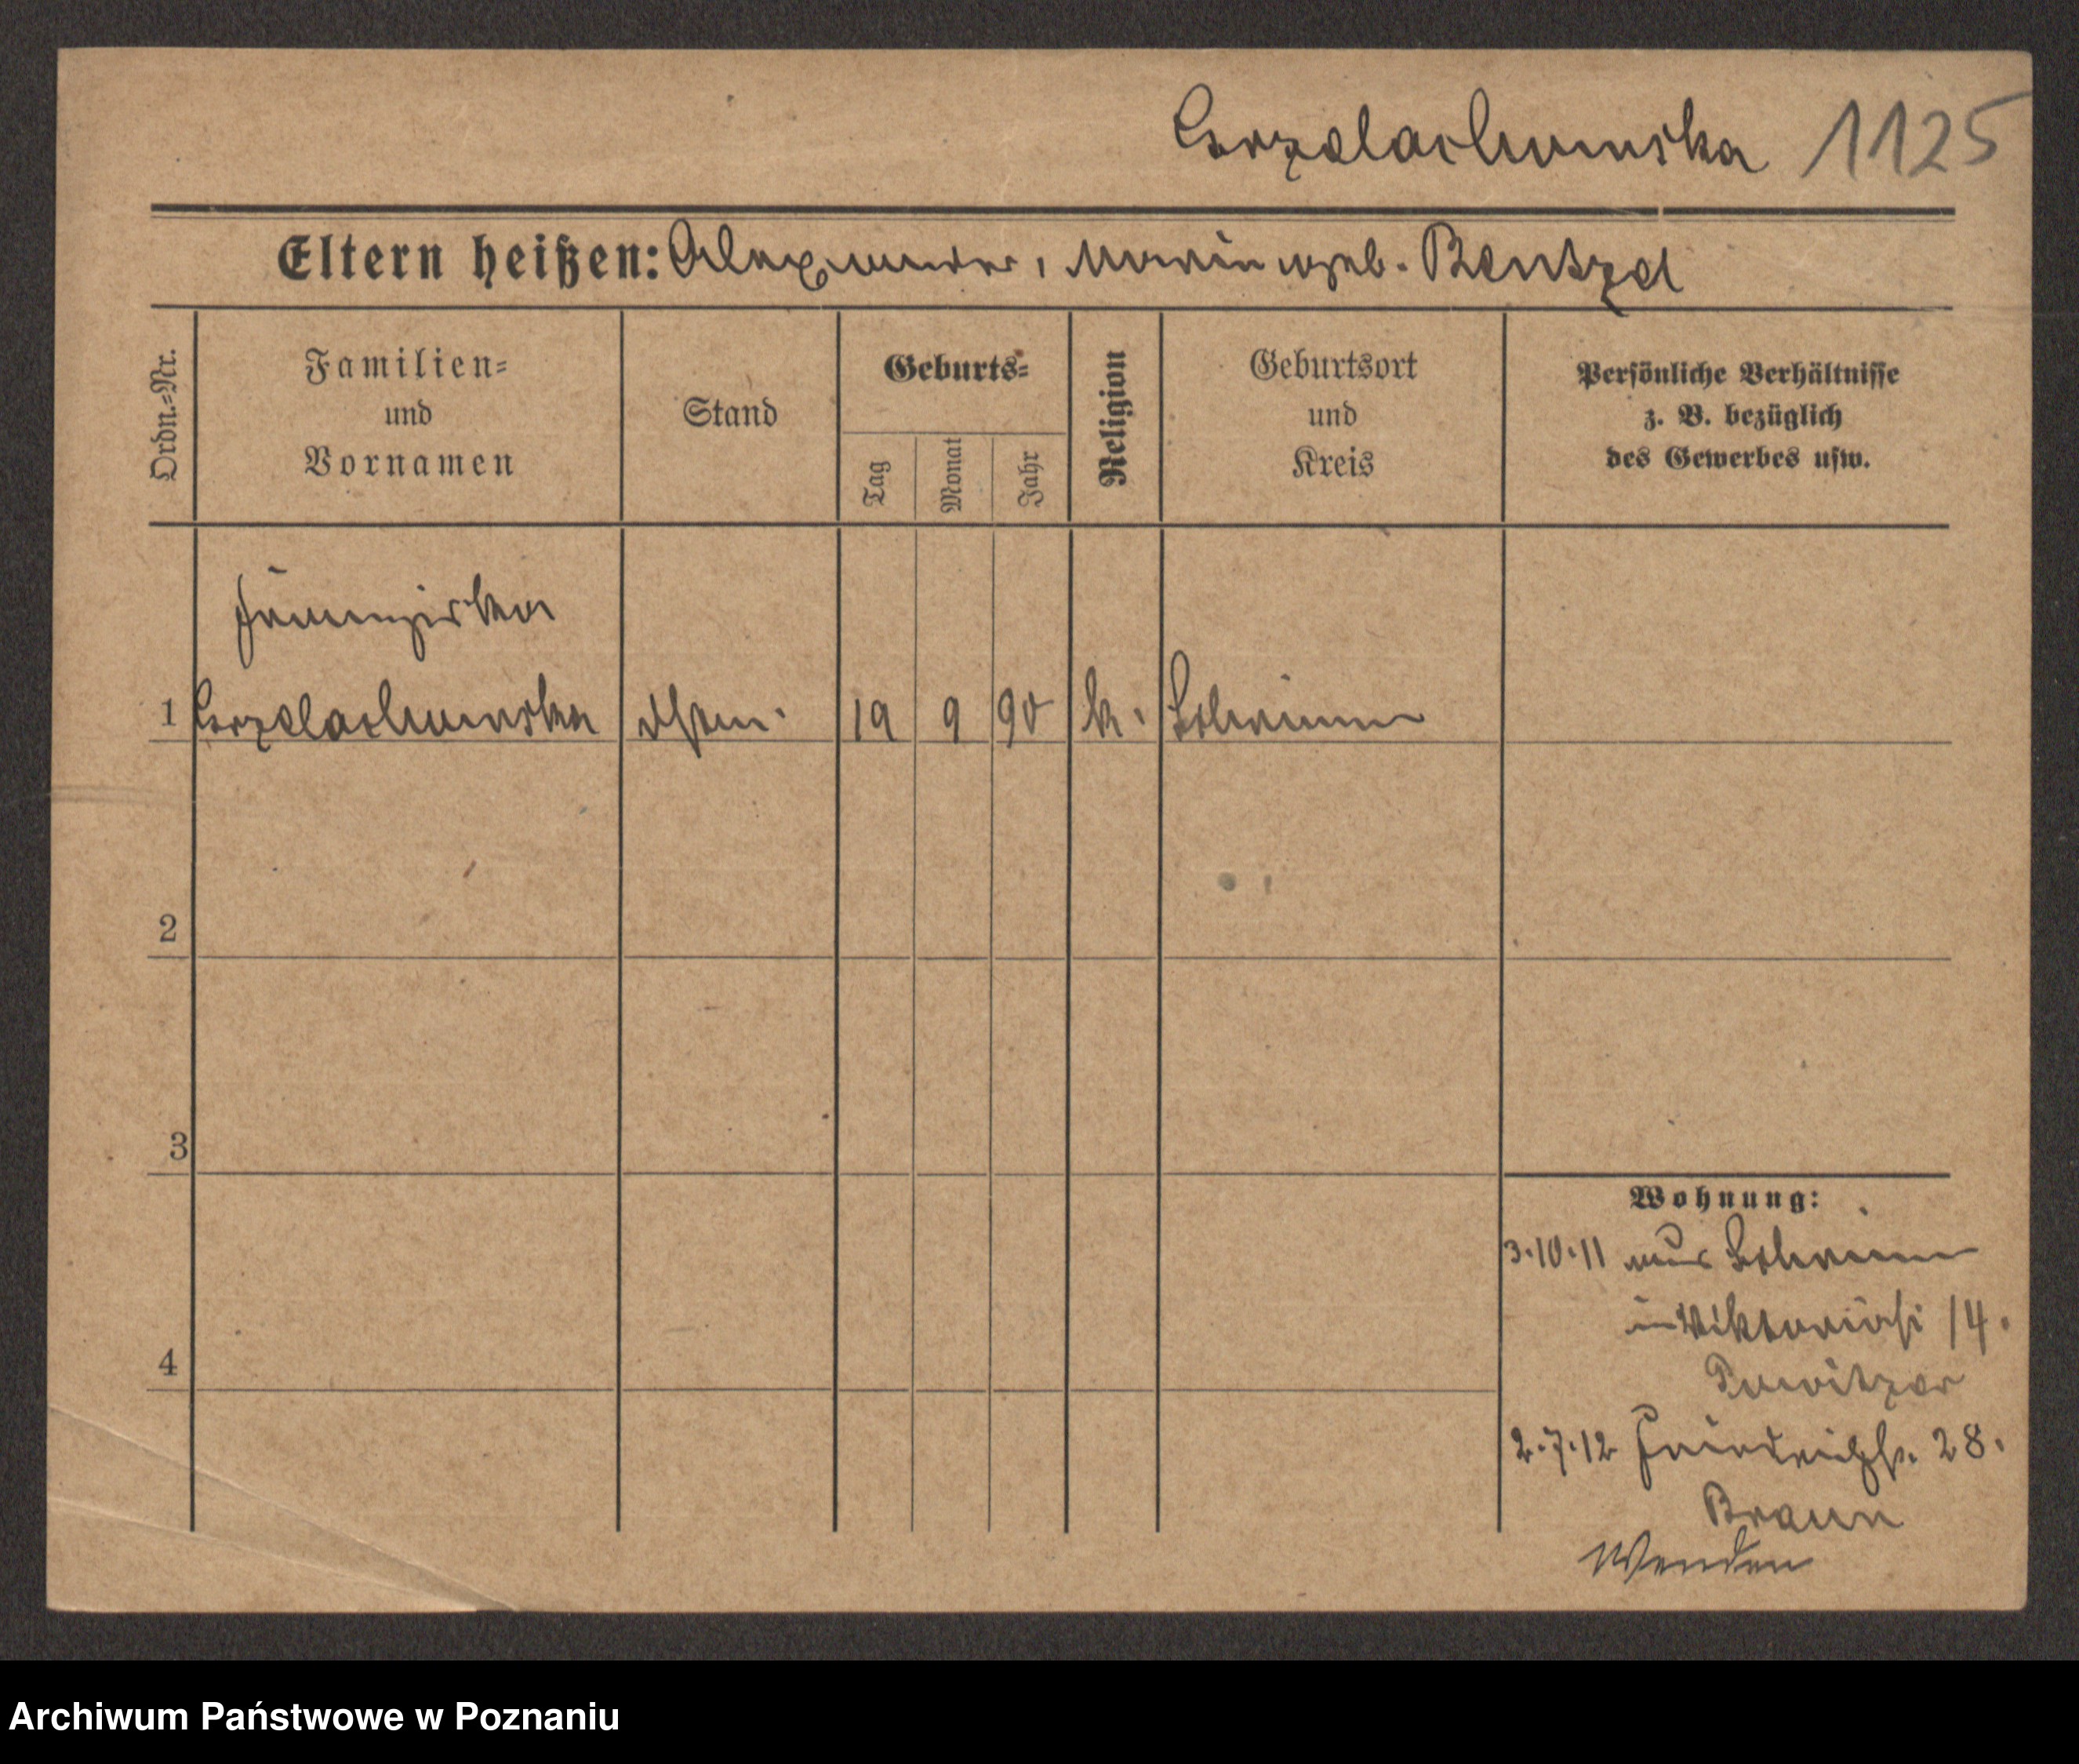 Grzelachowska 1125
Eltern heißen: Alexander, Maria geb. Bentzel
Ordn.=Nr.
Familien=
und
Vornamen
Stand
Geburts=
Tag
Monat
Jahr
Religion
Geburtsort
und
Kreis
Persönliche Verhältnisse
z. B. bezüglich
des Gewerbes usw.
Franziska
1 Grzelachowska 19 9 90 k. Schrimm
2
3
4
Wohnung:
3.10.11 aus Schrimm
in Viktoriast 14.
2.7.12 Friedrichst. 28.
Braun
Wenden
Archiwum Państwowe w Poznaniu